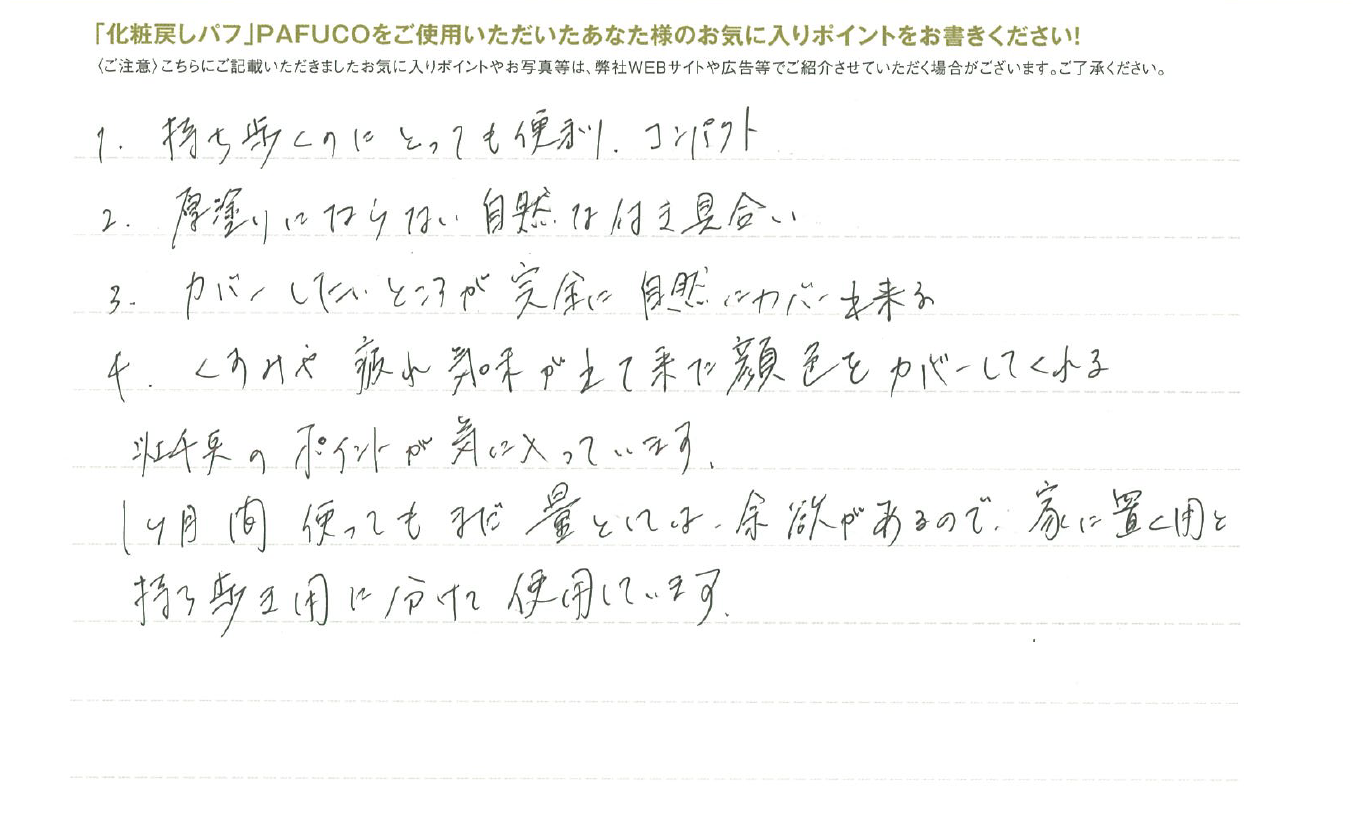 「化粧戻しパフ」PAFUCOをご使用いただいたあなた様のお気に入りポイントをお書きください!
〈ご注意〉こちらにご記載いただきましたお気に入りポイントやお写真等は、弊社WEBサイトや広告等でご紹介させていただく場合がございます。ご了承ください。
1. 持ち歩くのにとっても便利. コンパクト
2. 厚塗りにならない自然な付き具合い
3. カバーしたいところが完全に自然にカバー出来る
4. くすみや疲れ気味が出て来た顔色をカバーしてくれる
のポイントが気に入っています.
1ヶ月間使ってもまだ量としては、余欲があるので、家に置く用と
持ち歩き用に分けて使用しています.